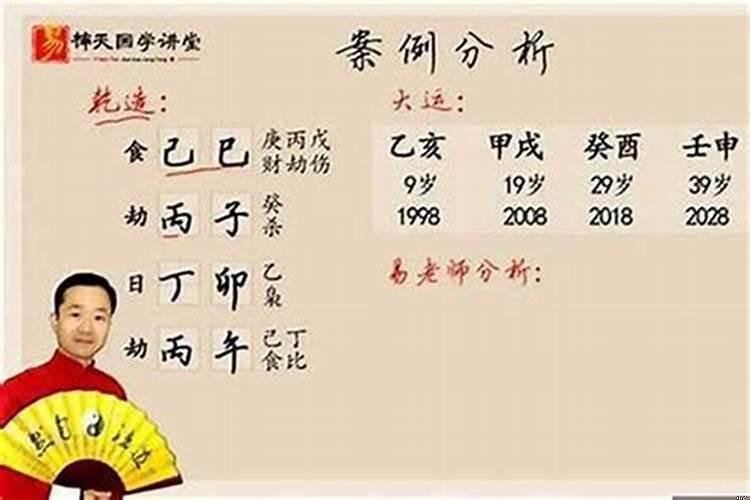 易 择天国学讲堂
案例分析
乾造：
食 己 巳 庚 丙 戊
财 劫 伤
劫 丙 子 癸
杀
日 丁 卯 乙
枭
劫 丙 午 己 丁
食 比
大运：
乙亥 甲戌 癸酉 壬申
9岁 19岁 29岁 39岁
1998 2008 2018 2028
易老师分析：